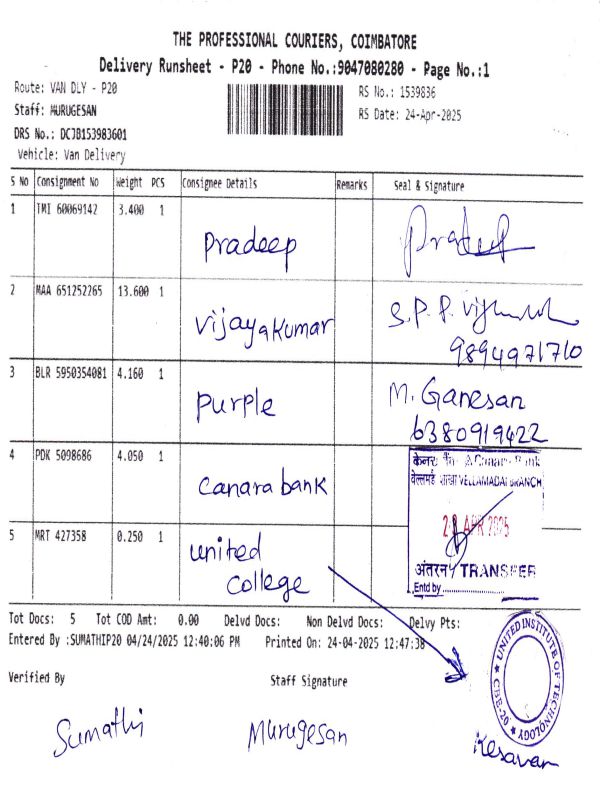 THE PROFESSIONAL COURIERS, COIMBATORE
Delivery Runsheet - P20 - Phone No.:9047080280 - Page No.:1
Route: VAN DLY - P20
RS No.: 1539836
Staff: MURUGESAN
RS Date: 24-Apr-2025
DRS No.: DCJB153983601
Vehicle: Van Delivery
S No Consignment No Weight PCS Consignee Details Remarks Seal & Signature
1 TMI 60069142 3.400 1
Pradeep Pradeep
2 MAA 651252265 13.600 1
Vijayakumar S.P.P.
9894971710
3 BLR 5950354081 4.160 1
Purple M. Ganesan
6380919422
4 PDK 5098686 4.050 1
Canara bank
केनरा बैंक Canara Bank
शाखा VELLAMADAI BRANCH
APR 2025
TRANSFER
Entd by
5 MRT 427358 0.250 1
United
College
Tot Docs: 5 Tot COD Amt: 0.00 Delvd Docs: Non Delvd Docs: Delvy Pts:
Entered By :SUMATHIP20 04/24/2025 12:40:06 PM Printed On: 24-04-2025 12:47:38
★ UNITED INSTITUTE OF TECHNOLOGY ★ CBE-20
Verified By Staff Signature
Sumathi Murugesan Kesavan